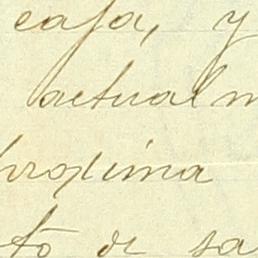 casa, y
actualm
proxima
to de sa